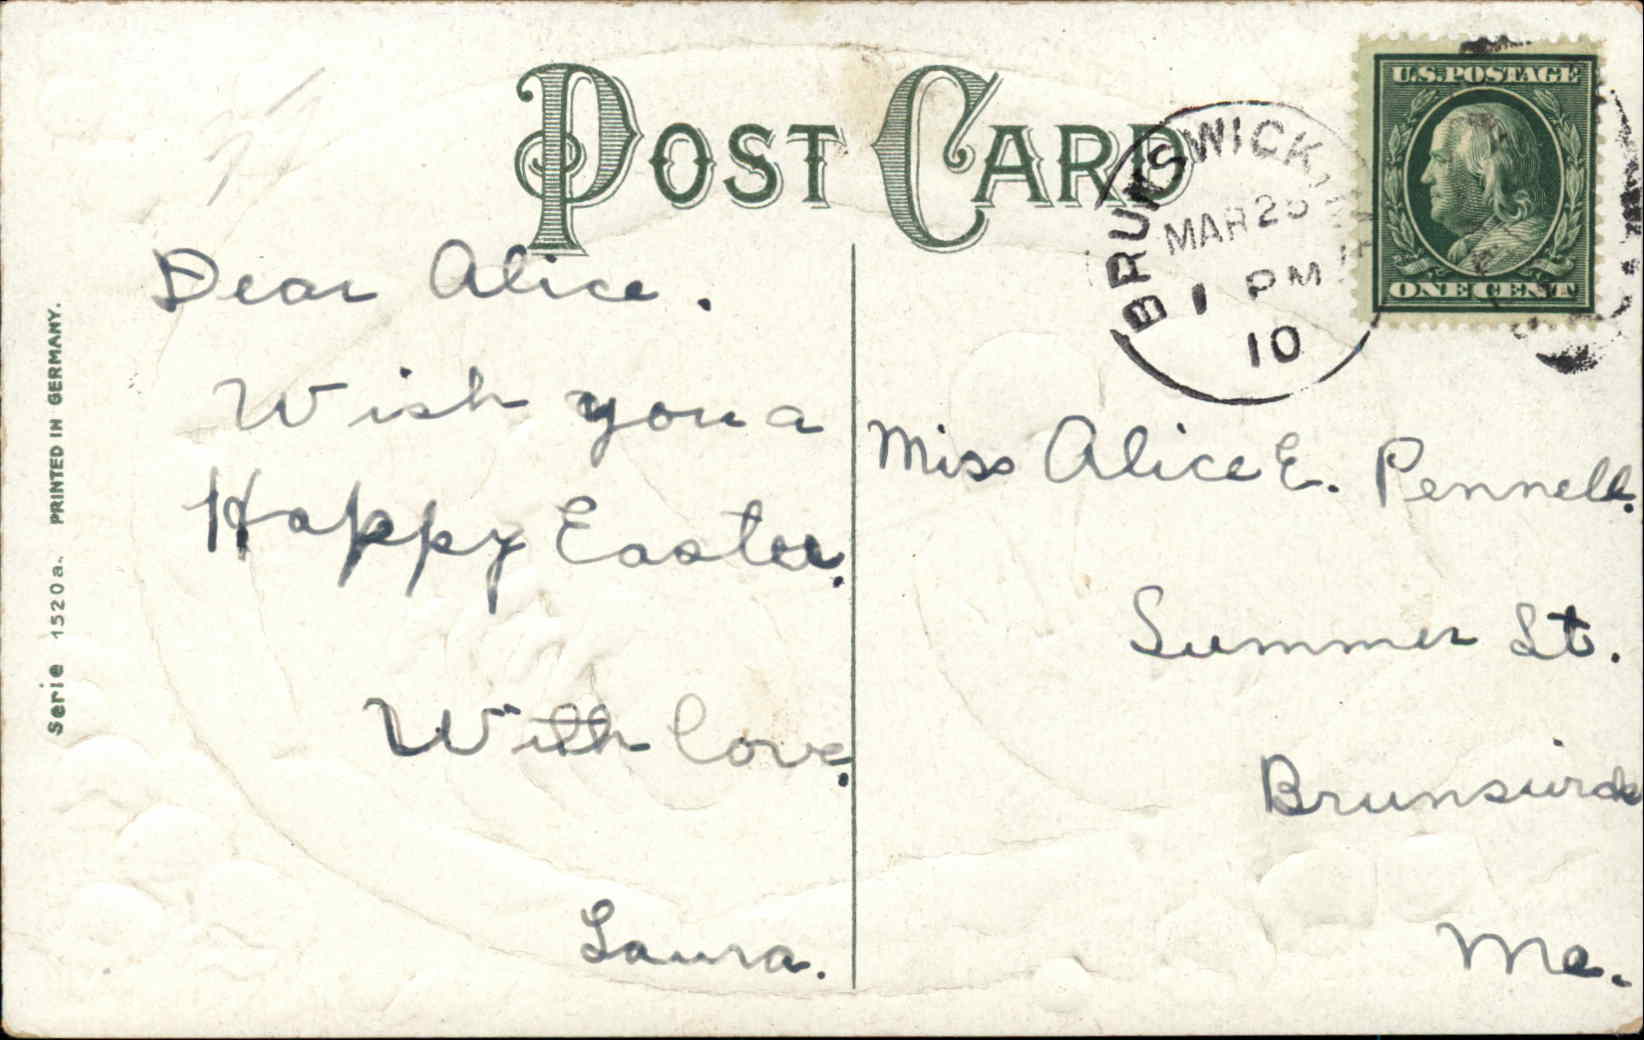 POST CARD
U.S. POSTAGE
ONE CENT
BRUNSWICK
MAR
1 PM
10
Dear Alice.
Wish you a
Happy Easter.
With love.
Laura.
Miss Alice E. Pennell.
Summer St.
Brunswick
Me.
Serie 1520 a. PRINTED IN GERMANY.